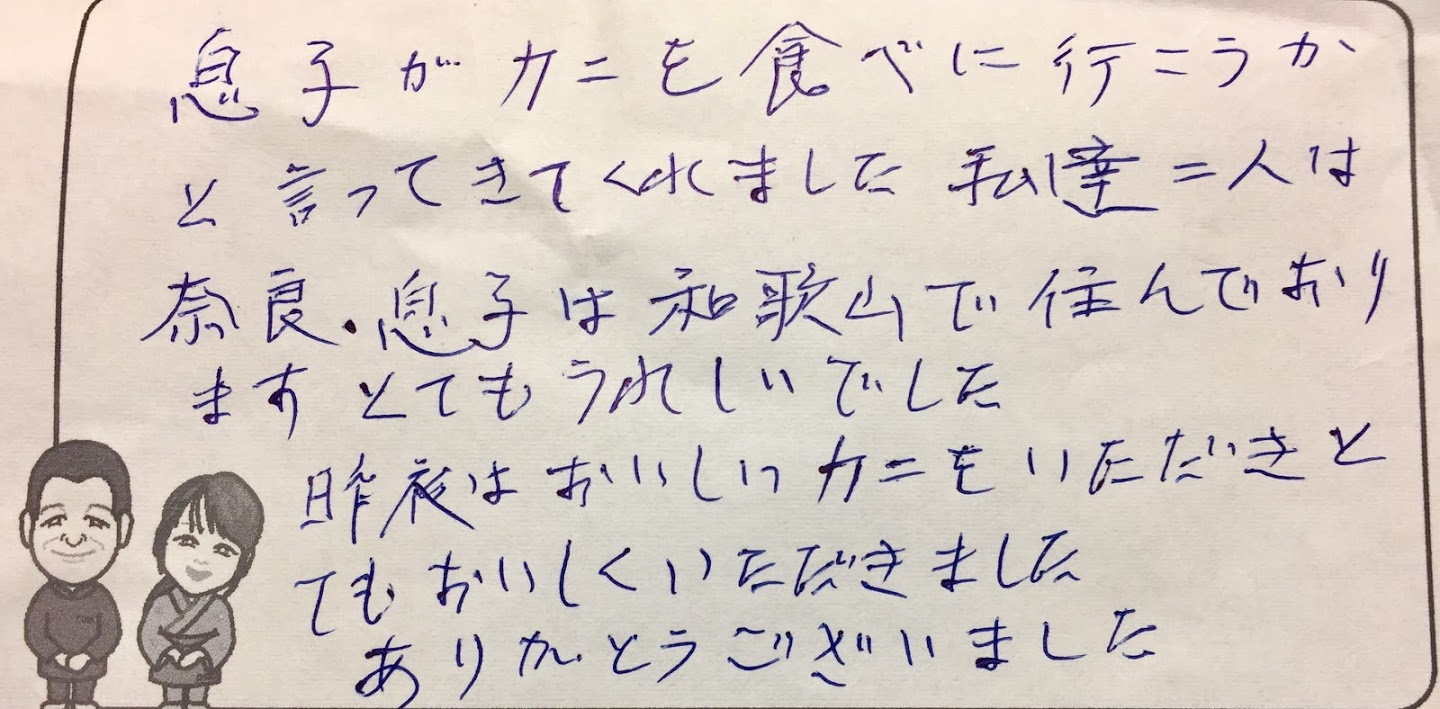 息子がカニを食べに行こうか
と言ってきてくれました 私達二人は
奈良.息子は和歌山で住んでおり
ます とてもうれしいでした
昨夜はおいしいカニをいただきと
てもおいしくいただきました
ありがとうございました